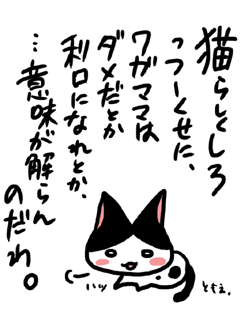 猫らしくしろ
っつーくせに、
ワガママは
ダメだとか
利口になれとか、
…意味が解らん
のだわ。
くーハッ
ともえ。